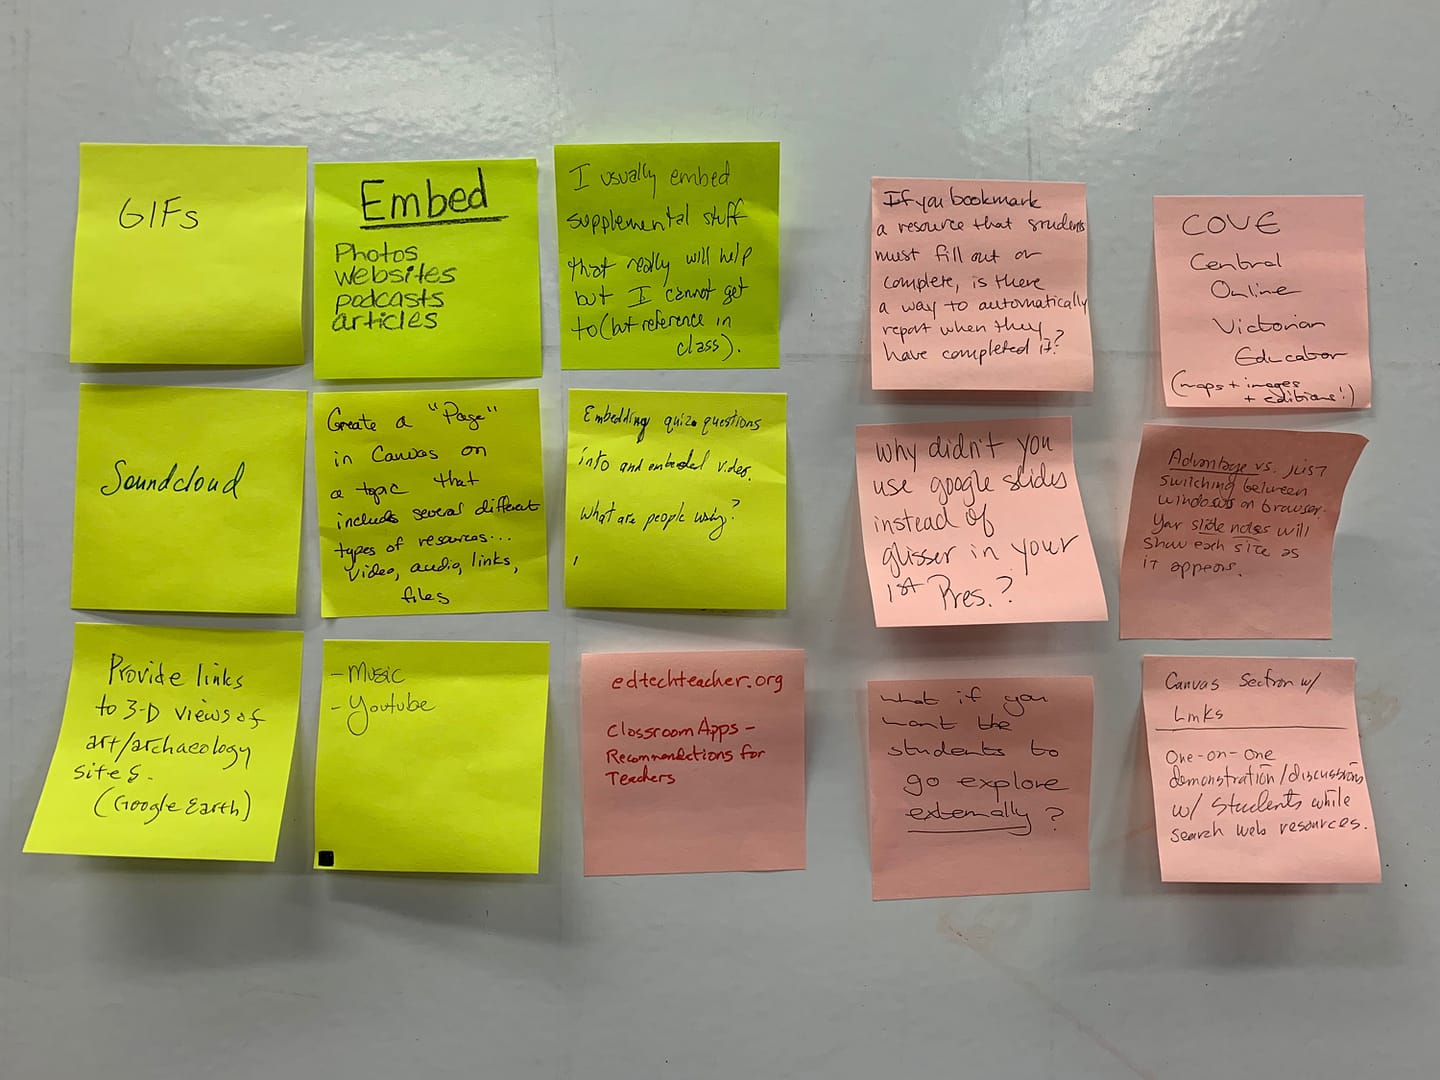 GIFs
Embed
Photos
websites
podcasts
articles
I usually embed
supplemental stuff
that really will help
but I cannot get
to (but reference in
class).
If you bookmark
a resource that students
must fill out or
complete, is there
a way to automatically
report when they
have completed it?
COVE
Central
Online
Victorian
Educator
(maps + images
+ editions!)
Soundcloud
Create a "Page"
in Canvas on
a topic that
includes several different
types of resources...
video, audio, links,
files
Embedding quiz questions
into and embedded video.
What are people using?
Why didn't you
use google slides
instead of
glisser in your
1st Pres.?
Advantage vs. just
switching between
windows on browser.
Your slide notes will
show each site as
it appears.
Provide links
to 3-D views of
art/archaeology
sites.
(Google Earth)
- Music
- Youtube
edtechteacher.org
Classroom Apps -
Recommendations for
Teachers
What if you
want the
students to
go explore
externally?
Canvas Section w/
Links
One-on-one
demonstration/discussions
w/ students while
search web resources.